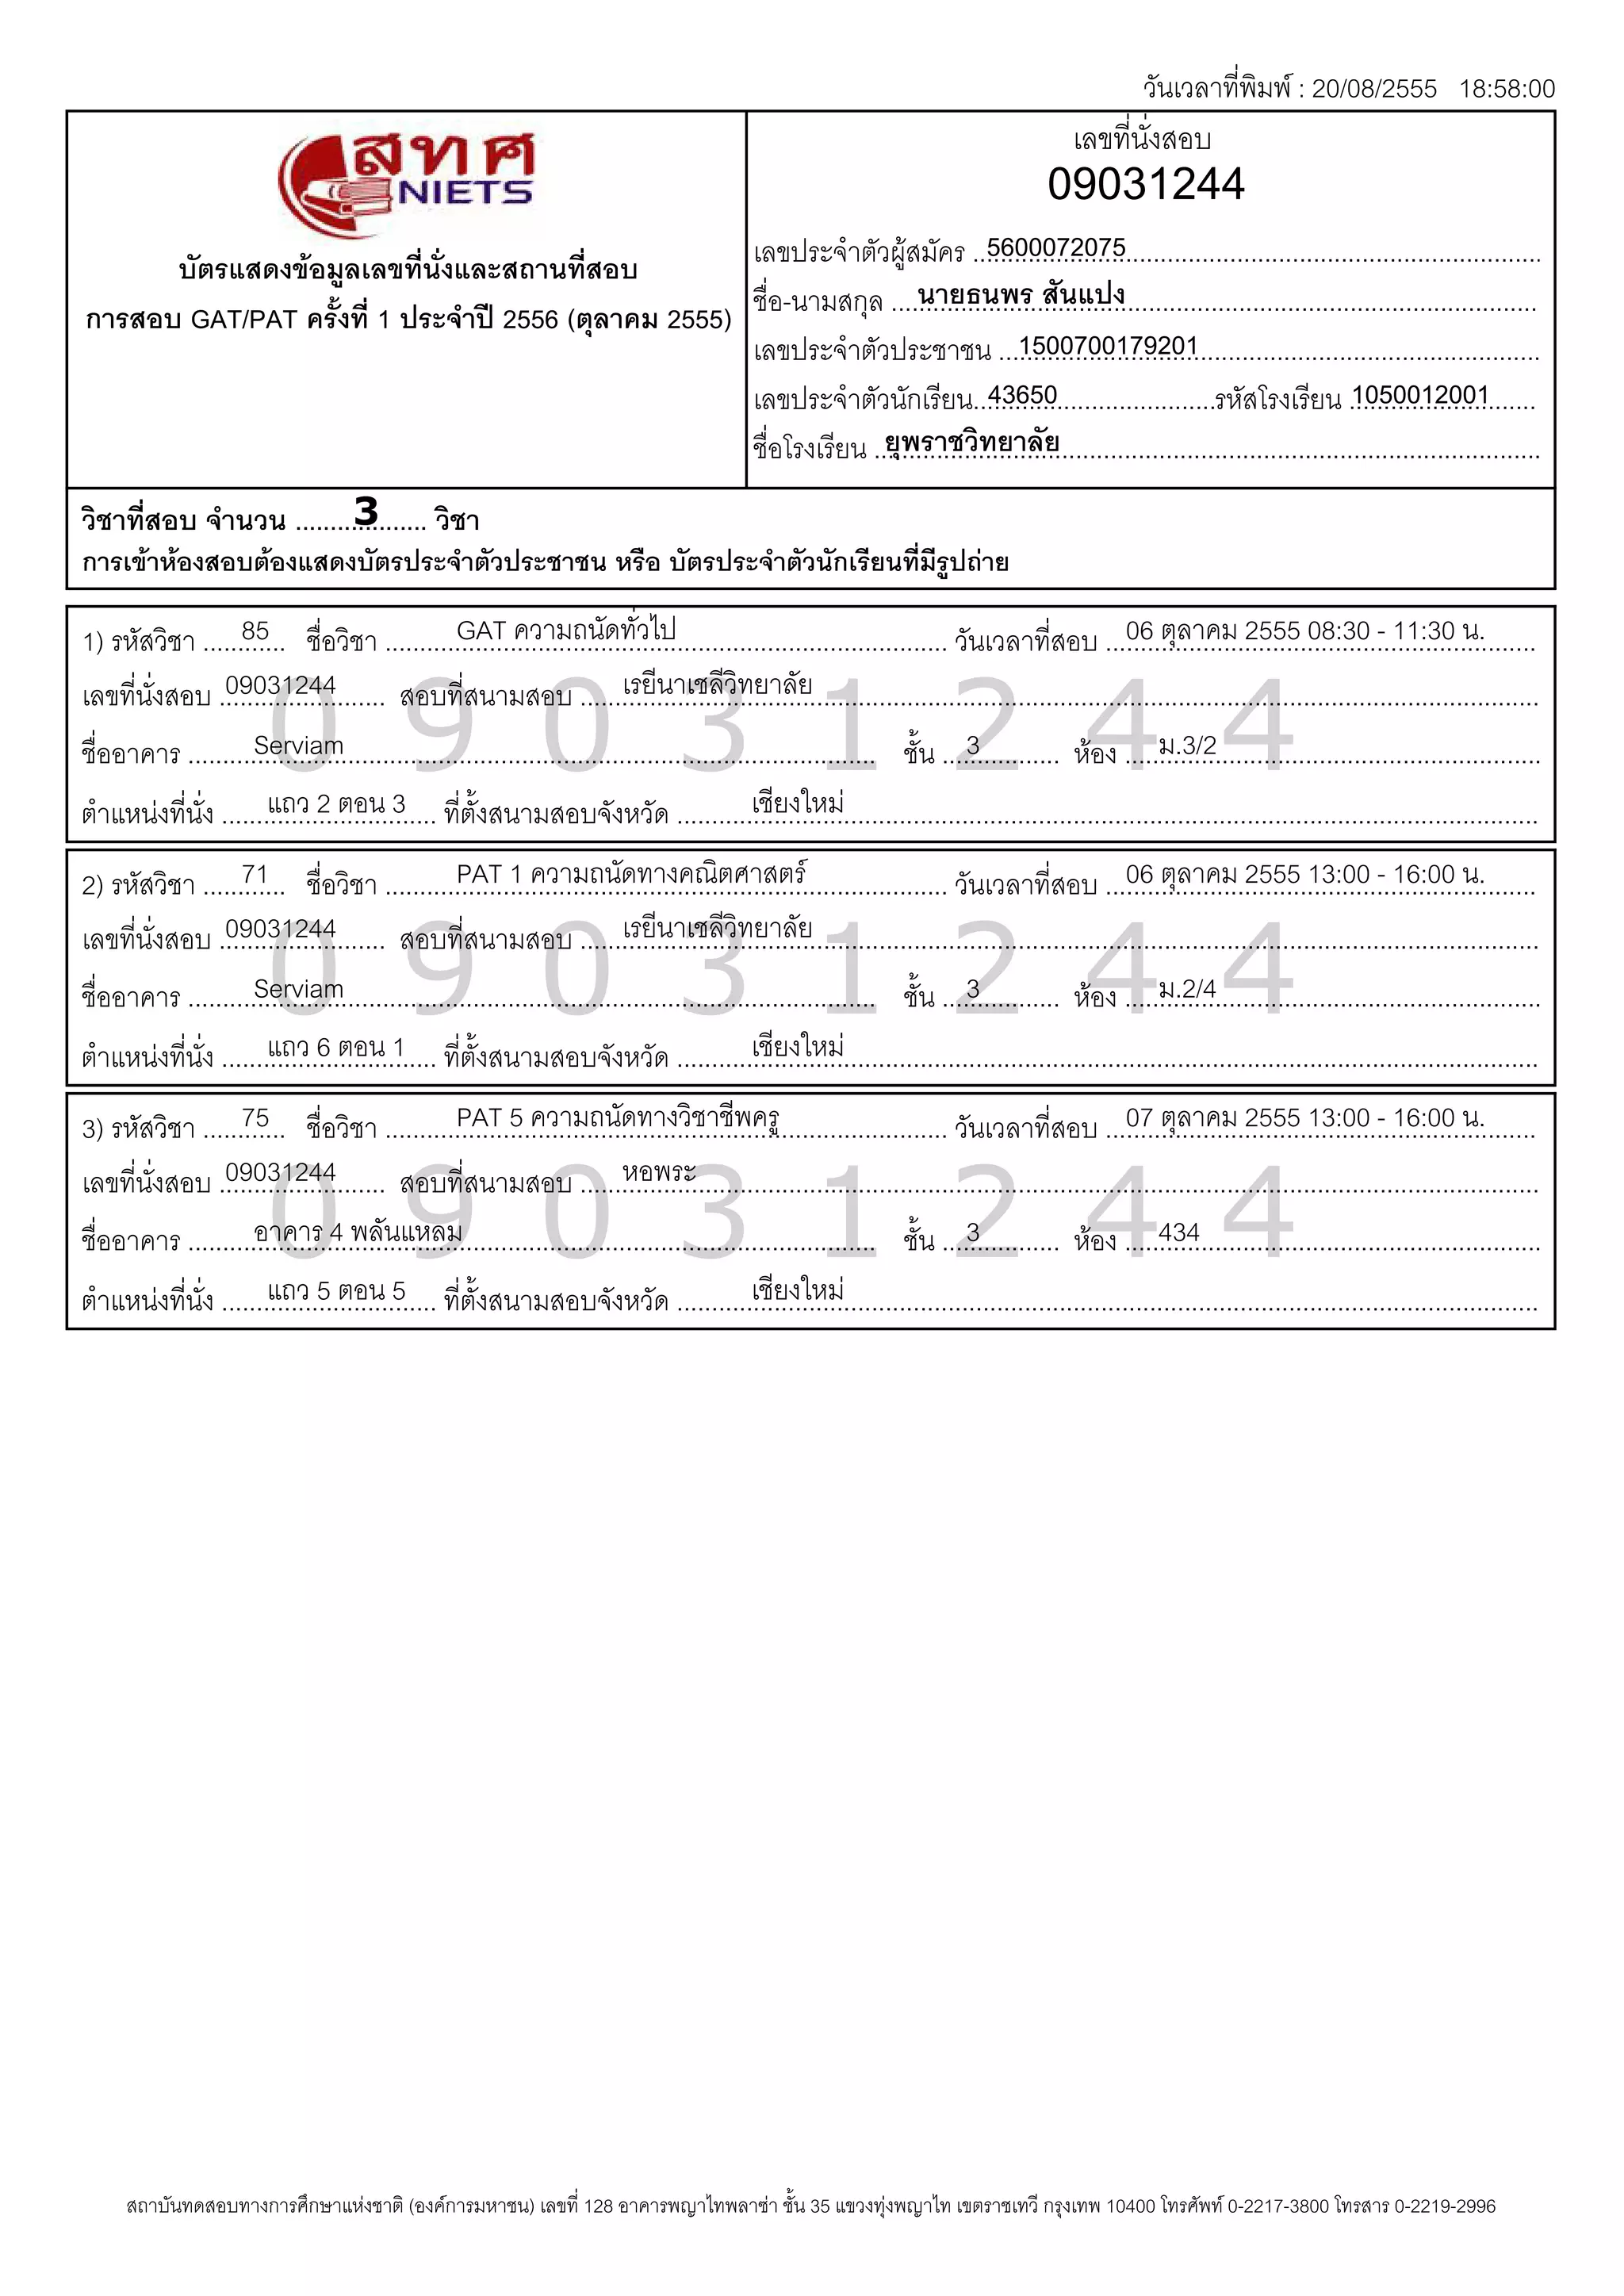 วันเวลาที่พิมพ์ : 20/08/2555 18:58:00
สทศ
NIETS
บัตรแสดงข้อมูลเลขที่นั่งและสถานที่สอบ
การสอบ GAT/PAT ครั้งที่ 1 ประจำปี 2556 (ตุลาคม 2555)
เลขที่นั่งสอบ
09031244
เลขประจำตัวผู้สมัคร 5600072075
ชื่อ-นามสกุล นายธนพร สันแปง
เลขประจำตัวประชาชน 1500700179201
เลขประจำตัวนักเรียน 43650 รหัสโรงเรียน 1050012001
ชื่อโรงเรียน ยุพราชวิทยาลัย
วิชาที่สอบ จำนวน 3 วิชา
การเข้าห้องสอบต้องแสดงบัตรประจำตัวประชาชน หรือ บัตรประจำตัวนักเรียนที่มีรูปถ่าย
1) รหัสวิชา 85 ชื่อวิชา GAT ความถนัดทั่วไป วันเวลาที่สอบ 06 ตุลาคม 2555 08:30 - 11:30 น.
เลขที่นั่งสอบ 09031244 สอบที่สนามสอบ เรยีนาเชลีวิทยาลัย
09031244
ชื่ออาคาร Serviam ชั้น 3 ห้อง ม.3/2
ตำแหน่งที่นั่ง แถว 2 ตอน 3 ที่ตั้งสนามสอบจังหวัด เชียงใหม่
2) รหัสวิชา 71 ชื่อวิชา PAT 1 ความถนัดทางคณิตศาสตร์ วันเวลาที่สอบ 06 ตุลาคม 2555 13:00 - 16:00 น.
เลขที่นั่งสอบ 09031244 สอบที่สนามสอบ เรยีนาเชลีวิทยาลัย
09031244
ชื่ออาคาร Serviam ชั้น 3 ห้อง ม.2/4
ตำแหน่งที่นั่ง แถว 6 ตอน 1 ที่ตั้งสนามสอบจังหวัด เชียงใหม่
3) รหัสวิชา 75 ชื่อวิชา PAT 5 ความถนัดทางวิชาชีพครู วันเวลาที่สอบ 07 ตุลาคม 2555 13:00 - 16:00 น.
เลขที่นั่งสอบ 09031244 สอบที่สนามสอบ หอพระ
09031244
ชื่ออาคาร อาคาร 4 พลันแหลม ชั้น 3 ห้อง 434
ตำแหน่งที่นั่ง แถว 5 ตอน 5 ที่ตั้งสนามสอบจังหวัด เชียงใหม่
สถาบันทดสอบทางการศึกษาแห่งชาติ (องค์การมหาชน) เลขที่ 128 อาคารพญาไทพลาซ่า ชั้น 35 แขวงทุ่งพญาไท เขตราชเทวี กรุงเทพ 10400 โทรศัพท์ 0-2217-3800 โทรสาร 0-2219-2996